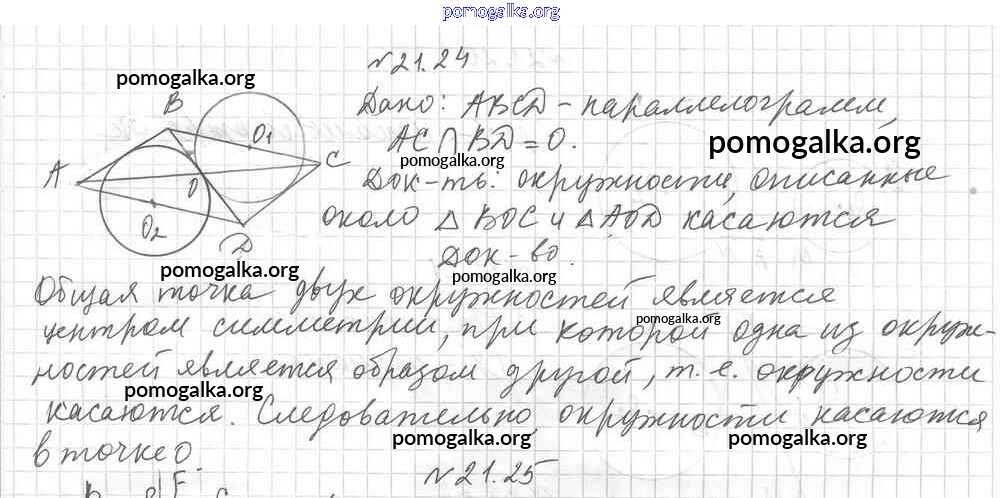 pomogalka.org
№21.24
pomogalka.org
Дано: ABCD - параллелограмм,
AC∩BD=O.
pomogalka.org
pomogalka.org
B
O1
C
A
O
O2
D
Док-ть: окружности, описанные
около △ BOC и △ AOD касаются
Док-во.
pomogalka.org
pomogalka.org
Общая точка двух окружностей является
центром симметрии, при которой одна из окруж-
pomogalka.org
ностей является образом другой, т. е. окружности
pomogalka.org
касаются. Следовательно, окружности касаются
в точке O.
pomogalka.org
pomogalka.org
№21.25